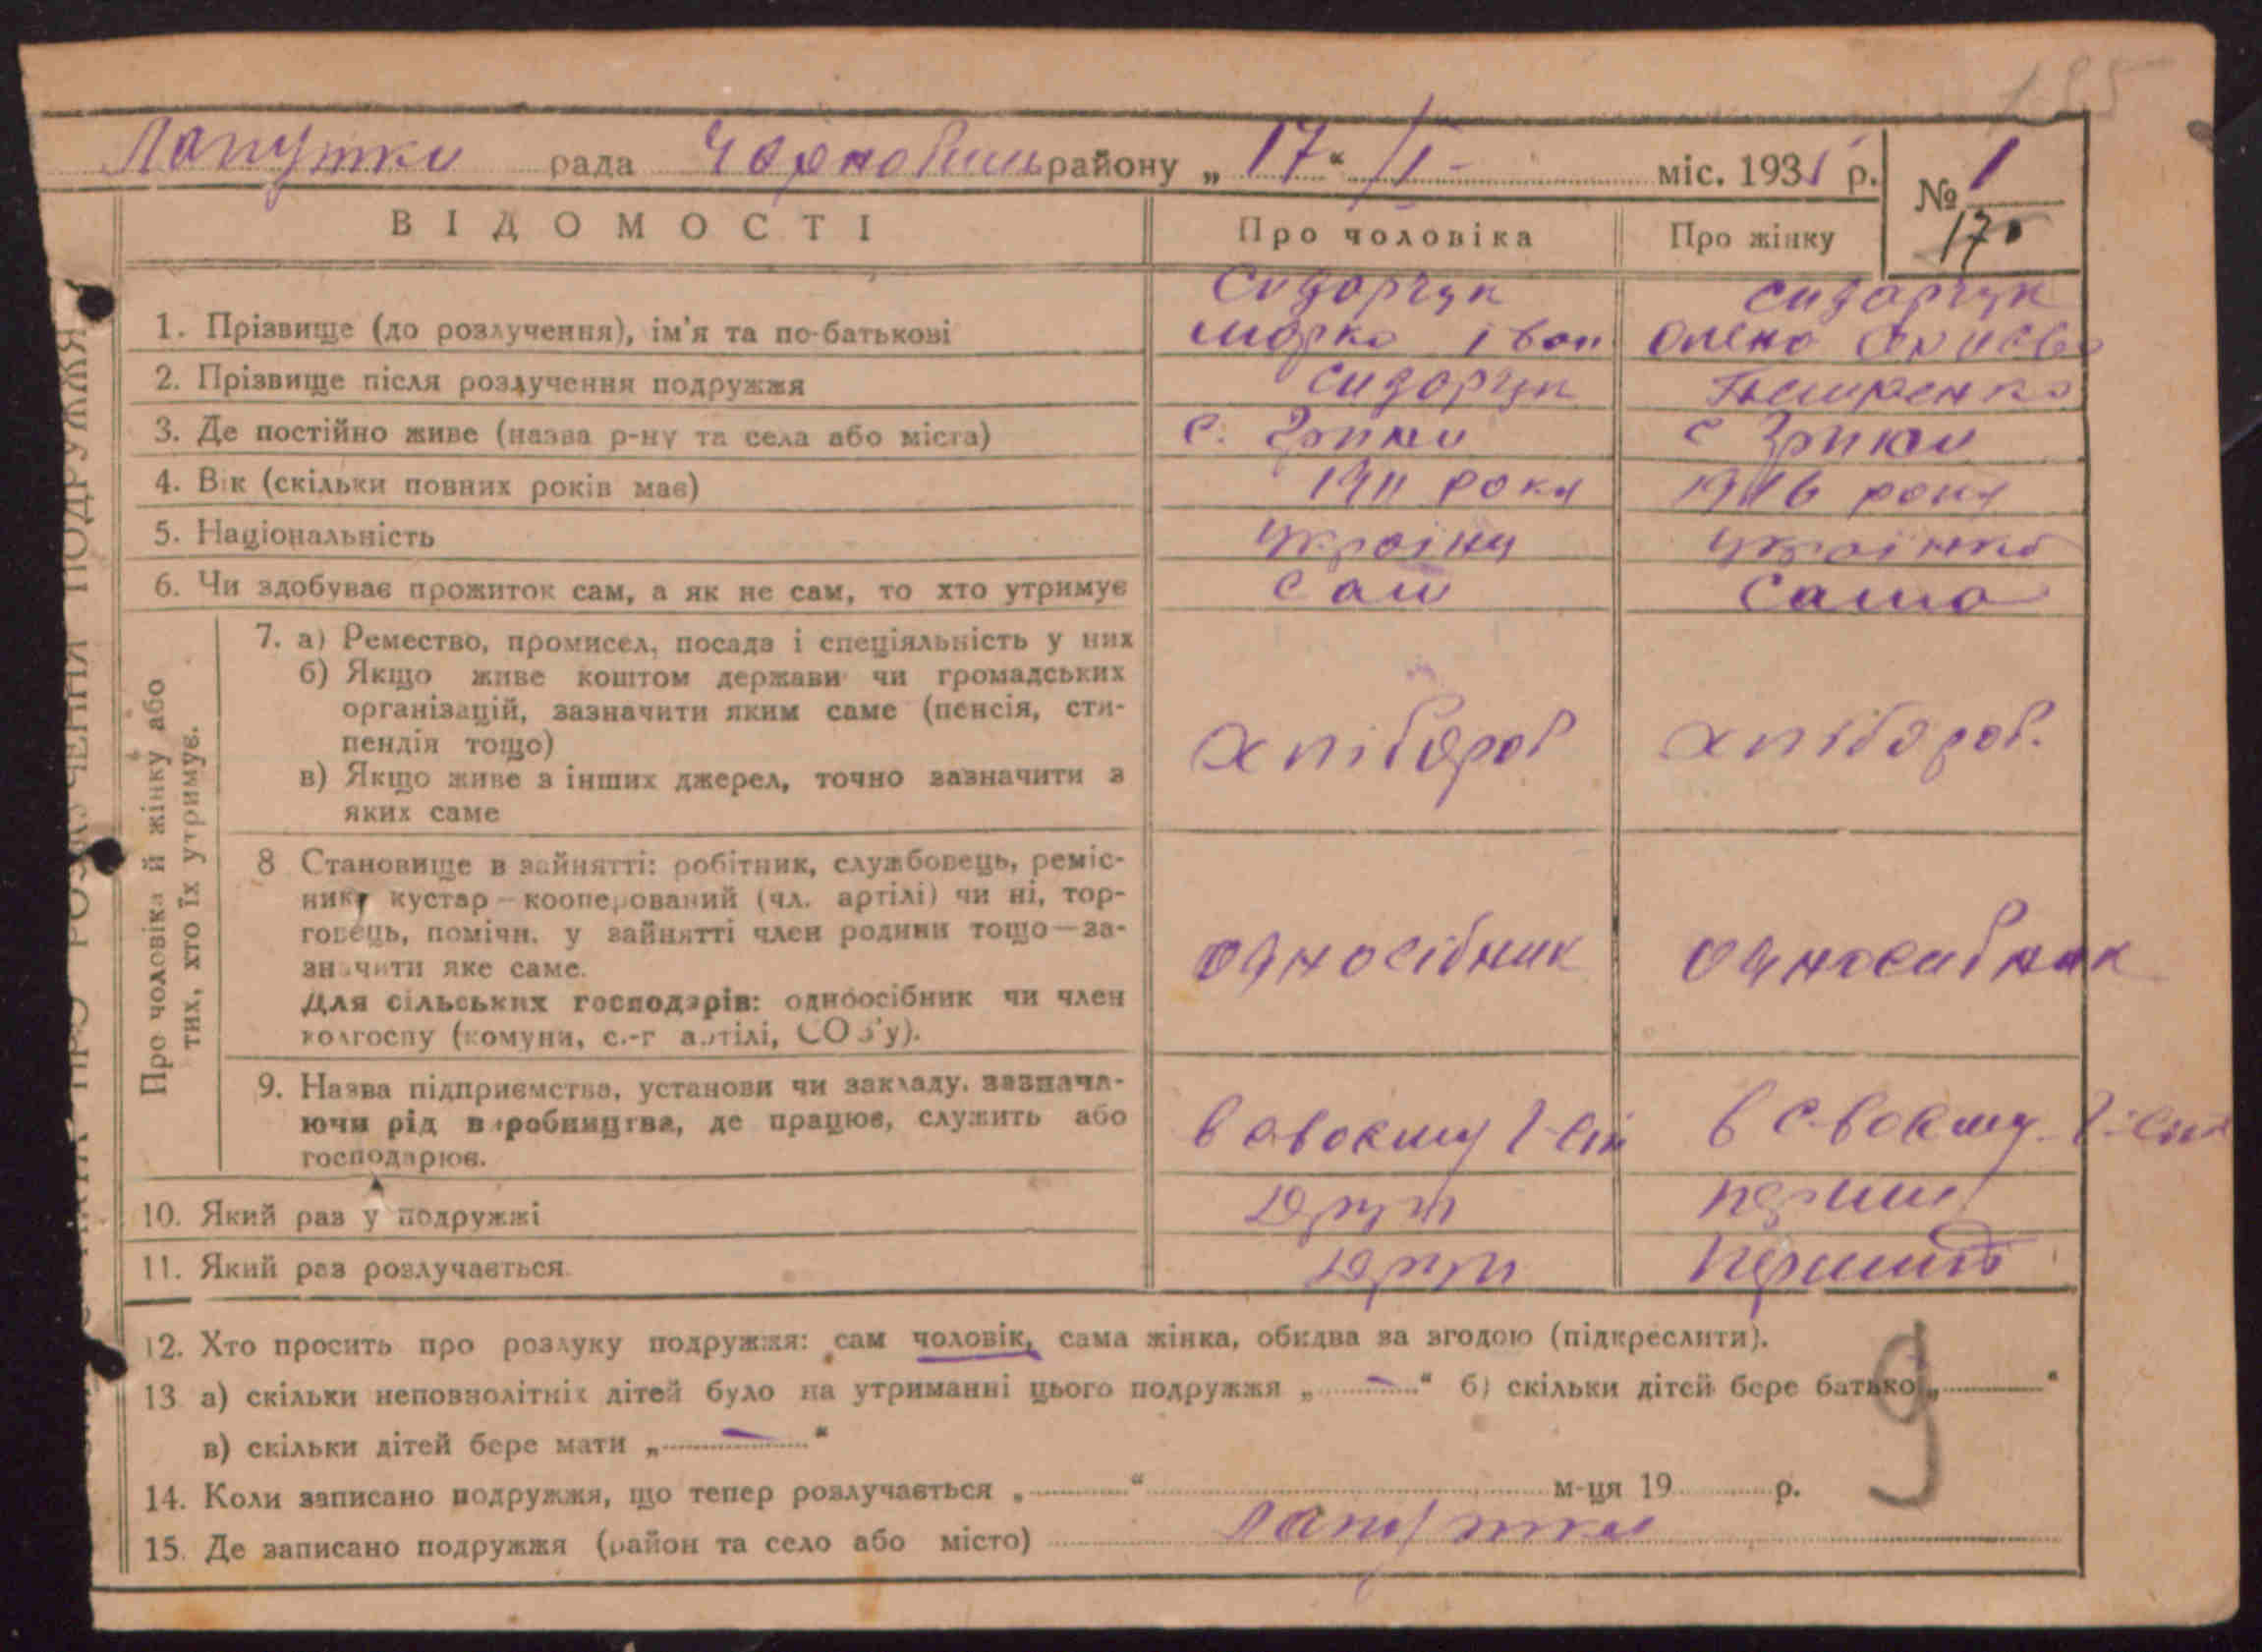 185
Лапутки рада Чорнобиль району „17“ /I- міс. 1935 р. № 1
170
ВІДОМОСТІ Про чоловіка Про жінку
Сидорчук Сидорчук
1. Прізвище (до розлучення), ім'я та по-батькові Марко Іван Олена
2. Прізвище після розлучення подружжя Сидорчук
3. Де постійно живе (назва р-ну та села або міста) с. с
4. Вік (скільки повних років має) 1911 рока 1916 рока
5. Національність україна українка
6. Чи здобуває прожиток сам, а як не сам, то хто утримує сам сама
Про чоловіка й жінку або
тих, хто їх утримує.
7. а) Ремество, промисел, посада і спеціяльність у них
б) Якщо живе коштом держави чи громадських
організацій, зазначити яким саме (пенсія, сти-
пендія тощо)
в) Якщо живе з інших джерел, точно зазначити з
яких саме
хлібороб хлібороб.
8 Становище в зайнятті: робітник, службовець, реміс-
ник, кустар—кооперований (чл. артілі) чи ні, тор-
говець, помічн. у зайнятті член родини тощо—за-
значити яке саме.
Для сільських господарів: одноосібник чи член
колгоспу (комуни, с.-г артілі, СОЗ'у).
односібник односибник
9. Назва підприємства, установи чи закладу, зазнача-
ючи рід виробництва, де працює, служить або
господарює.
в своєму в своєму
10. Який раз у подружжі други перши
11. Який раз розлучається други перший
12. Хто просить про розлуку подружжя: сам чоловік, сама жінка, обидва за згодою (підкреслити).
13 а) скільки неповнолітніх дітей було на утриманні цього подружжя „—“ б) скільки дітей бере батько „“
в) скільки дітей бере мати „—“
14. Коли записано подружжя, що тепер розлучається „“ м-ця 19 р.
15. Де записано подружжя (район та село або місто) Лапутки